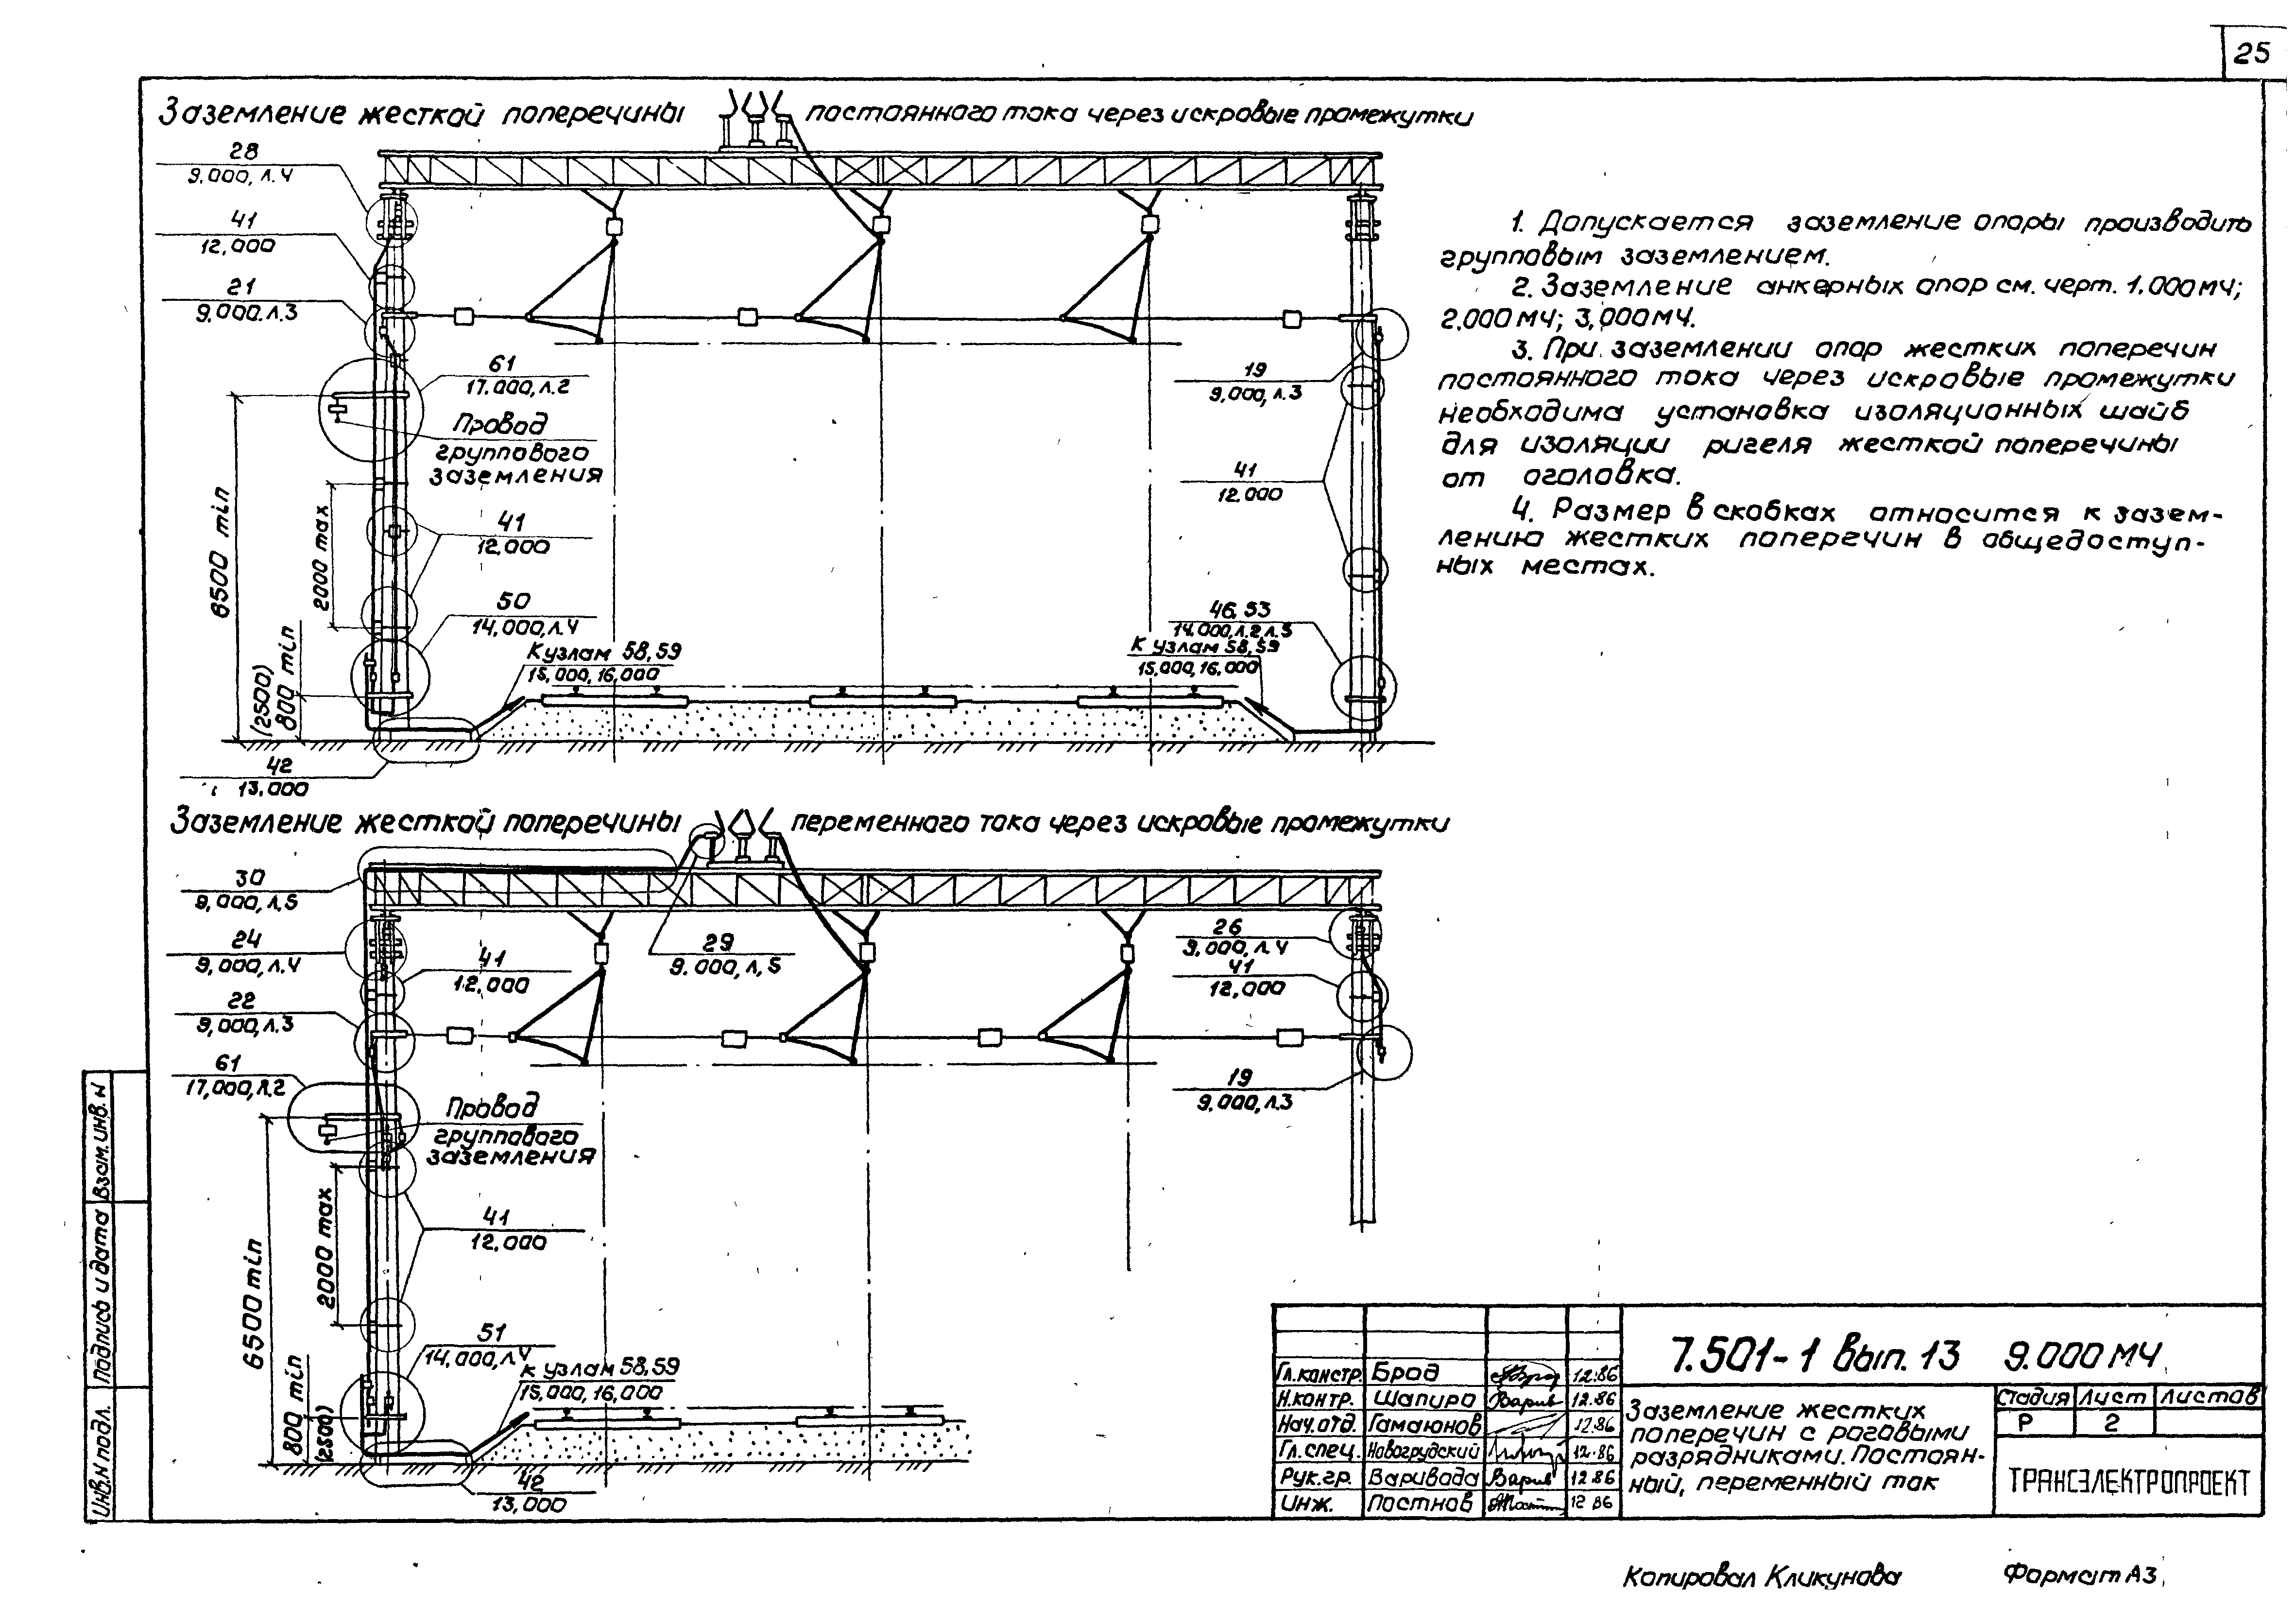 25
Заземление жесткой поперечины постоянного тока через искровые промежутки
28
9.000, л.4
41
12.000
21
9.000.л.3
61
17.000, л.2
Провод
группового
заземления
6500 min
2000 max
41
12.000
50
14.000, л.4
(2500)
800 min
К узлам 58,59
15.000, 16.000
42
13.000
19
9.000, л.3
41
12.000
46, 53
14.000, л.2, л.5
К узлам 58,59
15.000, 16.000
1. Допускается заземление опоры производить
групповым заземлением.
2. Заземление анкерных опор см. черт. 1.000МЧ;
2.000МЧ; 3.000МЧ.
3. При заземлении опор жестких поперечин
постоянного тока через искровые промежутки
необходима установка изоляционных шайб
для изоляции ригеля жесткой поперечины
от оголовка.
4. Размер в скобках относится к зазем-
лению жестких поперечин в общедоступ-
ных местах.
Заземление жесткой поперечины переменного тока через искровые промежутки
30
9.000, л.5
24
9.000, л.4
41
12.000
22
9.000, л.3
61
17.000, л.2
Провод
группового
заземления
29
9.000, л.5
26
9.000, л.4
41
12.000
19
9.000, л.3
6500 min
2000 max
41
12.000
51
14.000, л.4
800 min
(2500)
К узлам 58,59
15.000, 16.000
42
13.000
Взам. инв. н
Подпись и дата
Инв. н подл.
Гл.констр. Брод 12.86
Н.контр. Шапиро Варив 12.86
Нач.отд. Гамаюнов 12.86
Гл.спец. Новогрудский 12.86
Рук.гр. Варивода Варив 12.86
Инж. Постнов 12 86
7.501-1 вып. 13 9.000 МЧ
Заземление жестких
поперечин с роговыми
разрядниками. Постоян-
ный, переменный ток
Стадия Лист Листов
Р 2
ТРАНСЭЛЕКТРОПРОЕКТ
Копировал Кликунова Формат А3